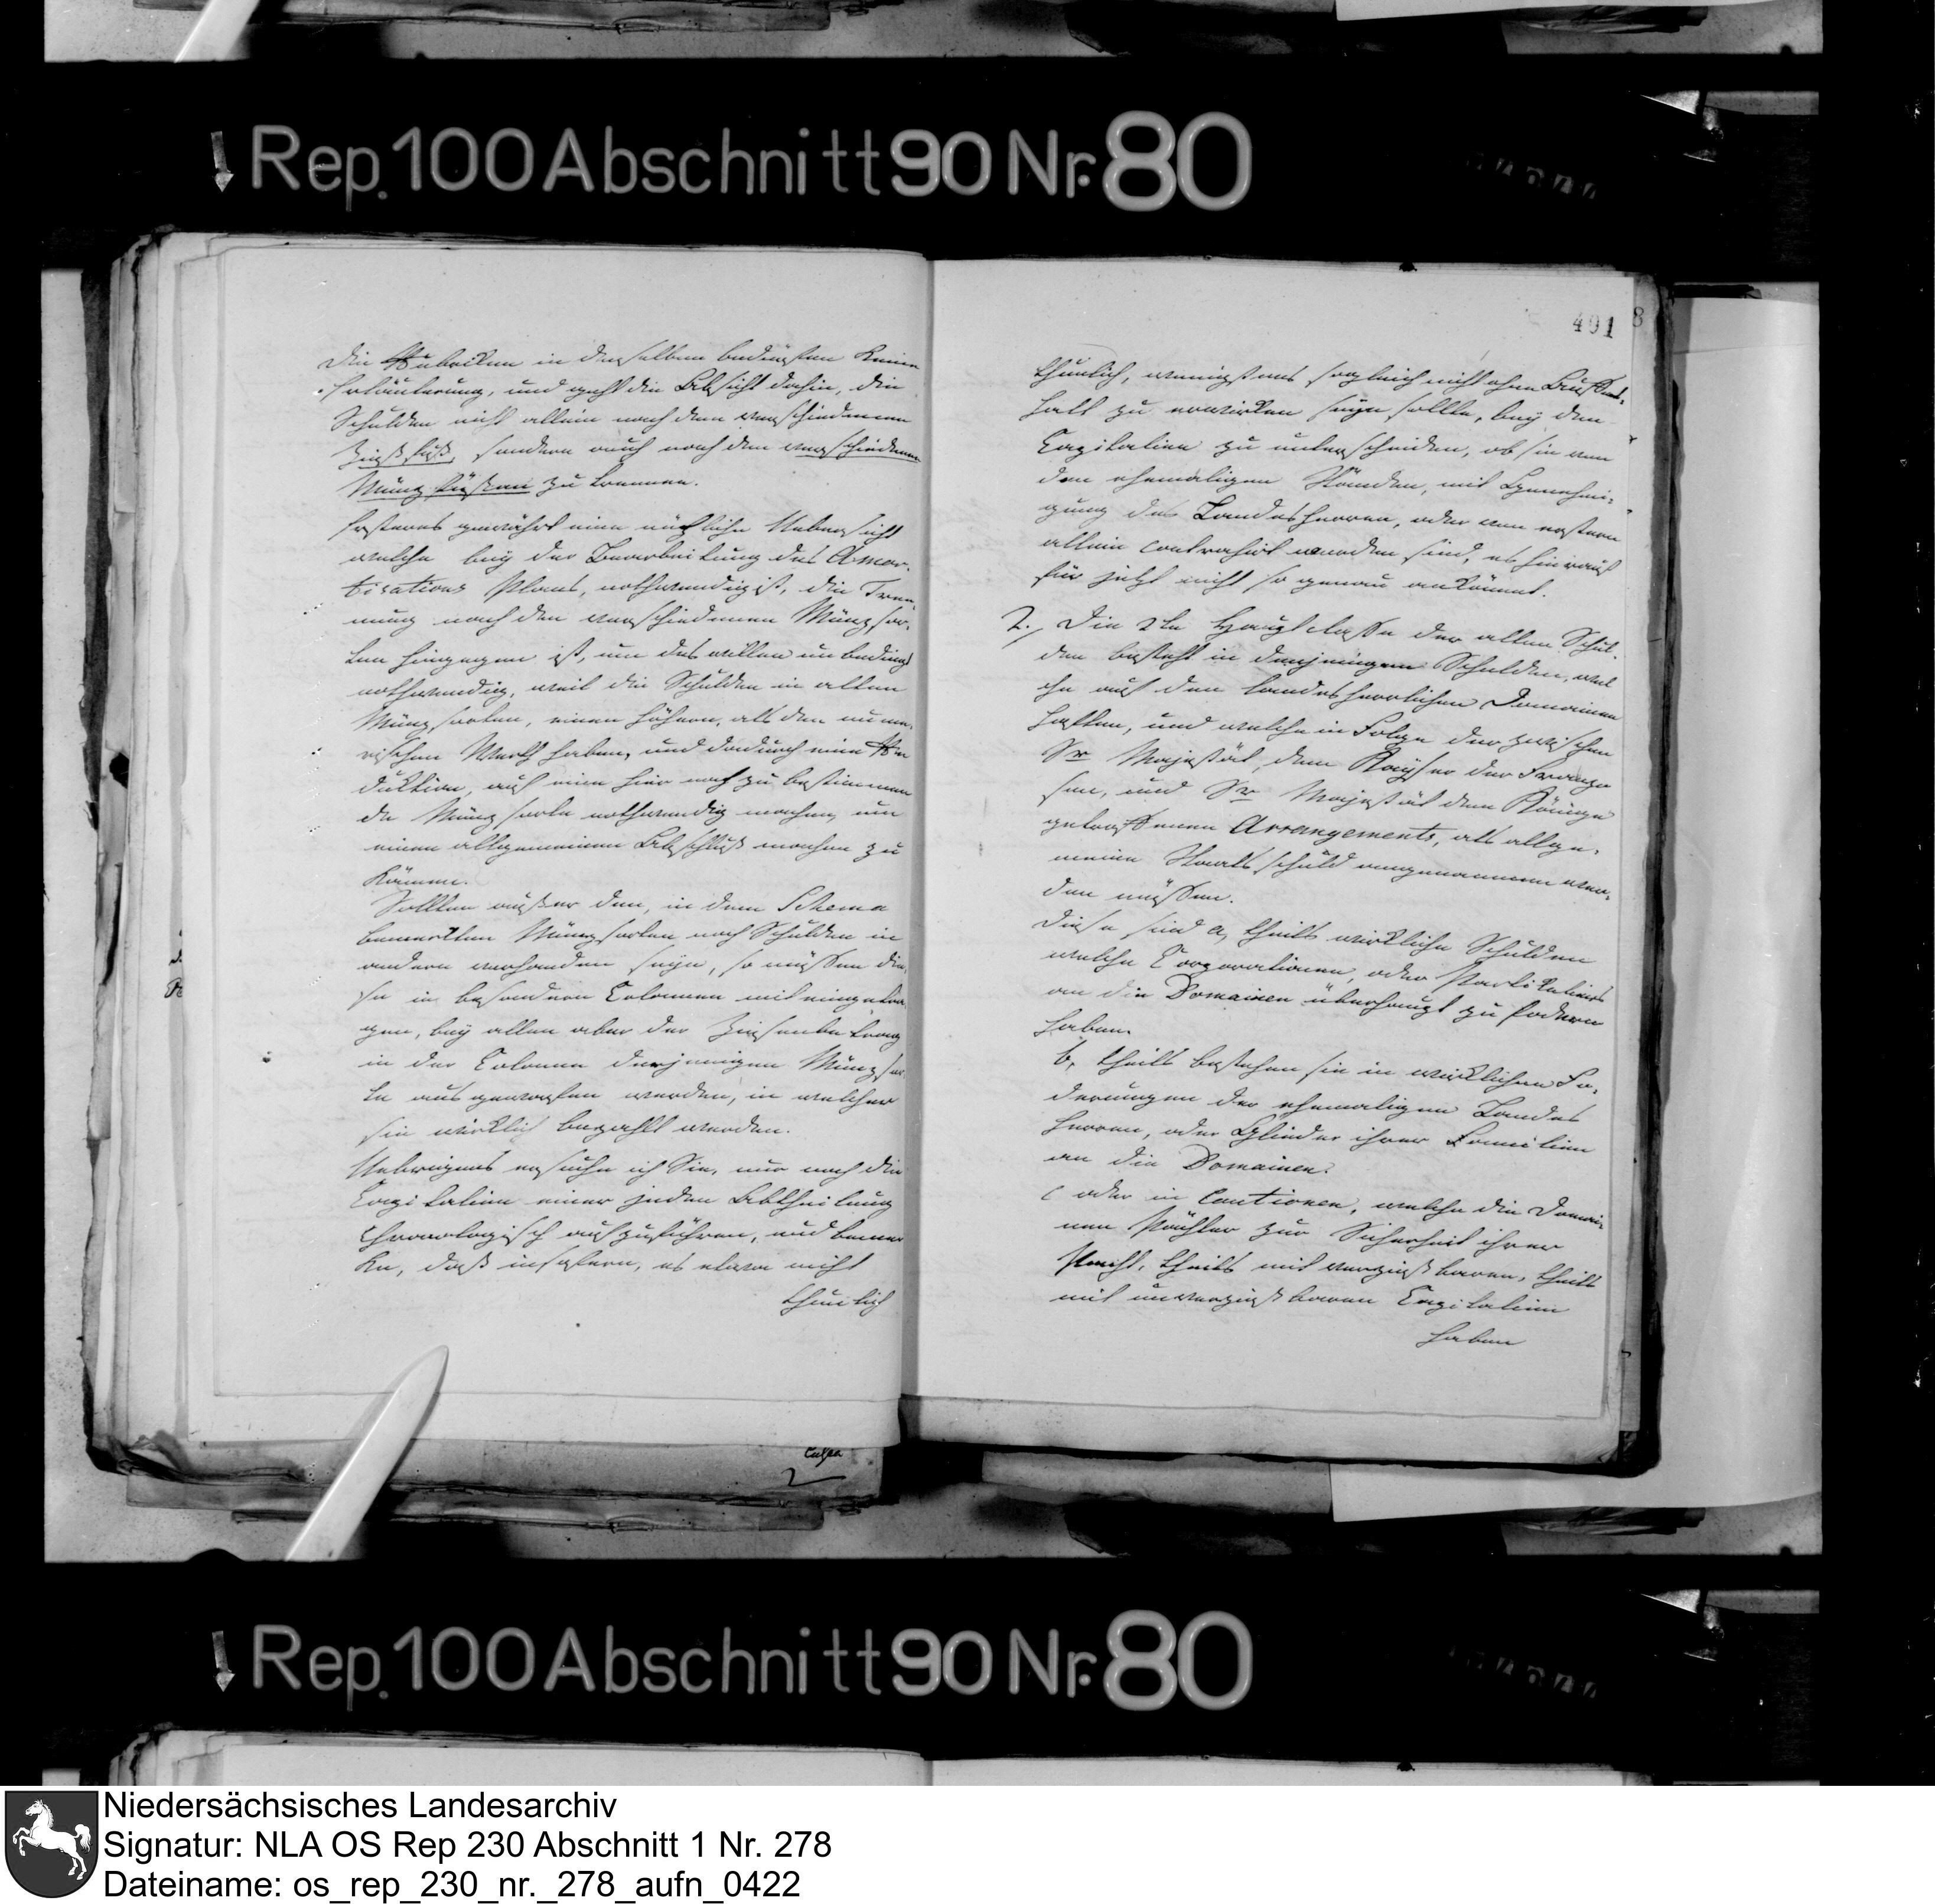 Rep. 100 Abschnitt 90 Nr. 80
Die Rubriken in denselben bedürfen keiner
Erläuterung, und geht die Absicht dahin, die
Schulden nicht allein nach den verschiedenen
Zinsfuß, sondern auch nach den verschiedenen
Münzfüßen zu trennen.
Ersteres gewährt eine nützliche Uebersicht
welche bey der Bearbeitung des Amor-
tisations Plans, nothwendig ist, die Tren-
nung nach den verschiedenen Münzsor-
ten hingegen ist, um des willen unbedingt
nothwendig, weil die Schulden in alten
Münzsorten, einen höhern, als den nume-
rischen Werth haben, und dadurch eine Re-
duktion, auf eine hier nach zu bestimmen-
de Münzsorte nothwendig machen, um
einen allgemeinen Abschluß machen zu
können.
Sollten außer den, in dem Schema
bemerkten Münzsorten noch Schulden in
andern vorhanden seyn, so müssen die-
se in besondern Colonnen mit eingetra-
gen, bey allen aber der Zinsenbetrag
in der Colonne derjenigen Münzsor-
te ausgeworfen werden, in welcher
sie wirklich bezahlt werden.
Uebrigens ersuche ich Sie, nur noch die
Capitalien einer jeden Abtheilung
chronologisch aufzuführen, und bemer-
ke, daß insofern, es etwa nicht
thunlich
401
8
thunlich, wenigstens sogleich nicht ohne Aufent-
halt zu erwirken seyn sollte, bey den
Capitalien zu unterscheiden, ob sie von
den ehemaligen Ständen, mit Genehmi-
gung des Landesherren, oder von erstern
allein contrahirt worden sind, es hierauf
für jetzt nicht so genau ankömmt.
2. Die 2te Hauptclasse der alten Schul-
den besteht in denjenigen Schulden, wel
che auf den landesherrlichen Domainen
haften, und welche in Folge der zwischen
Sr Majestät, dem Kayser der Franzo
sen, und Sr Majestät dem Könige
getroffenen Arrangements, als allge-
meine Staatsschuld angenommen wer-
den müssen.
Diese sind a, theils wirkliche Schulden
welche Corporationen, oder Particuliers
an die Domainen überhaupt zu fodern
haben.
b, theils bestehen sie in wirklichen Fo-
derungen der ehemaligen Landes
herren, oder Glieder ihrer Familien
an die Domainen.
c oder in Cautionen, welche die Domai-
nen Pächter zur Sicherheit ihrer
Pacht, theils mit verzinsbaren, theils
mit unverzinsbaren Capitalien
haben
Rep. 100 Abschnitt 90 Nr. 80
Niedersächsisches Landesarchiv
Signatur: NLA OS Rep 230 Abschnitt 1 Nr. 278
Dateiname: os_rep_230_nr._278_aufn_0422